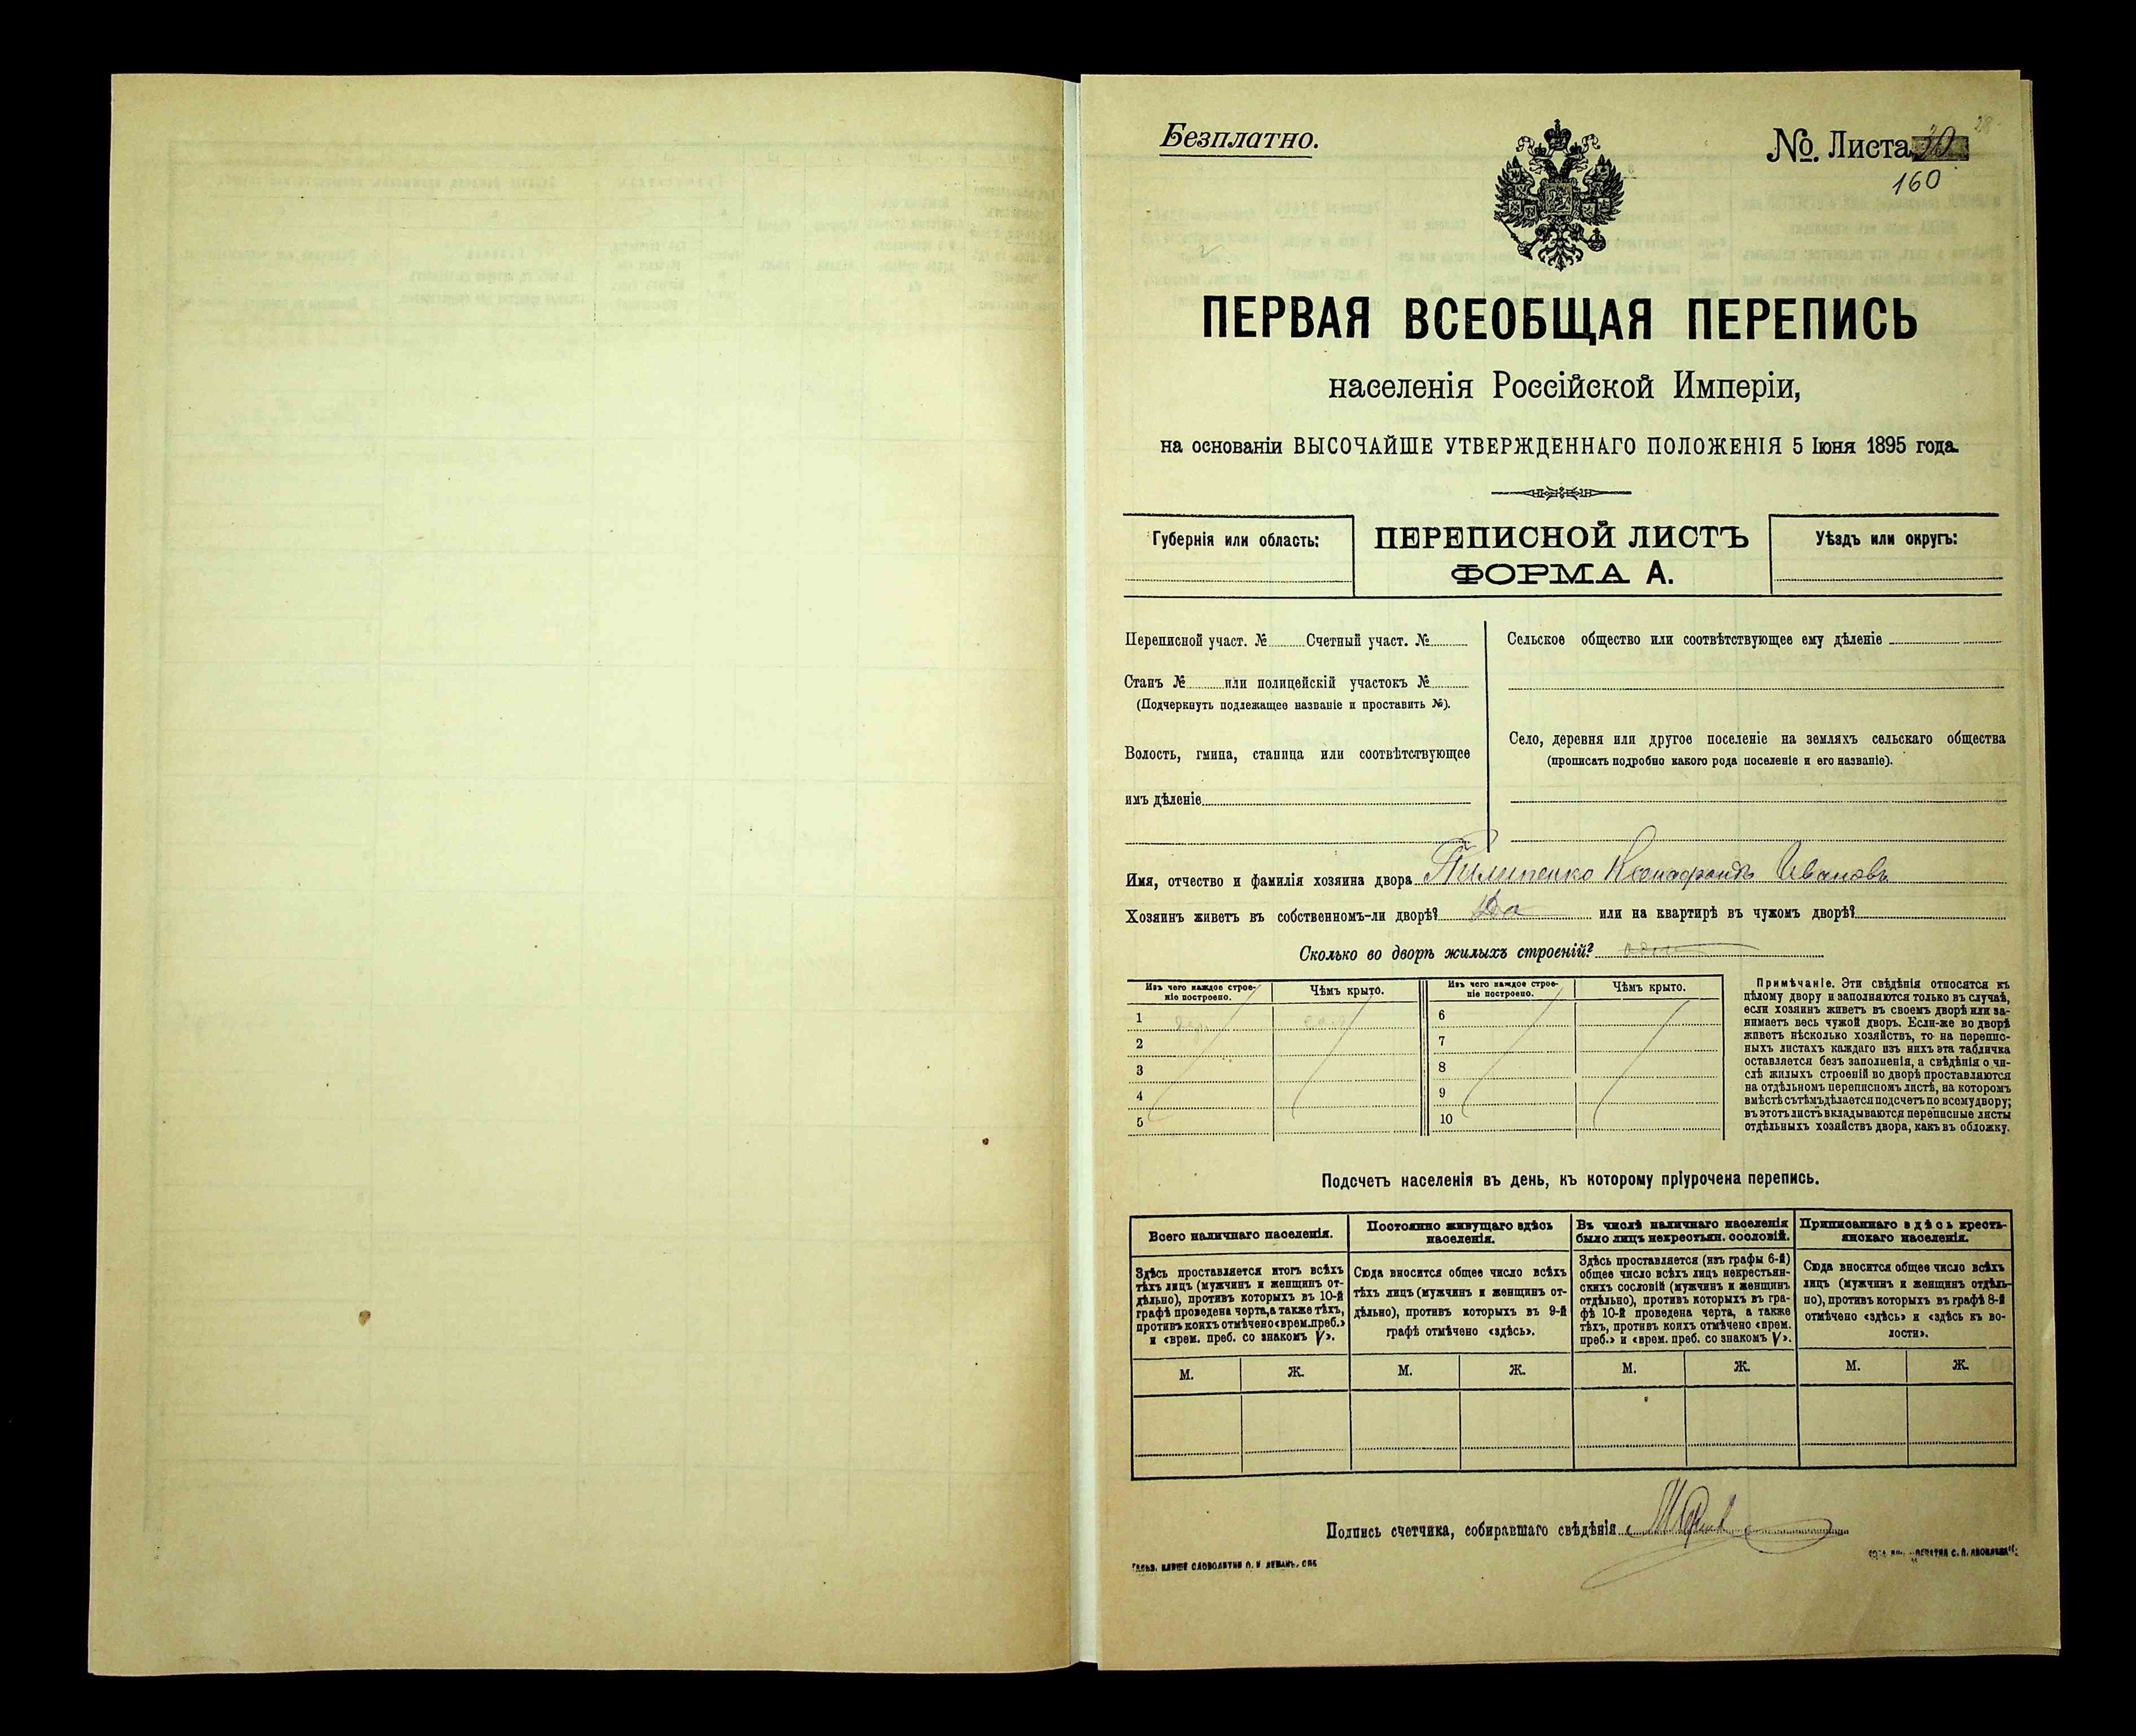 Безплатно.
No. Листа 30
160
ПЕРВАЯ ВСЕОБЩАЯ ПЕРЕПИСЬ
населенія Россійской Имперіи,
на основаніи ВЫСОЧАЙШЕ УТВЕРЖДЕННАГО ПОЛОЖЕНІЯ 5 Іюня 1895 года.
Губернія или область:
ПЕРЕПИСНОЙ ЛИСТЪ
ФОРМА А.
Уѣздъ или округъ:
Переписной участ. № Счетный участ. №
Станъ № или полицейскій участокъ №
(Подчеркнуть подлежащее названіе и проставить №).
Волость, гмина, станица или соотвѣтствующее
имъ дѣленіе
Сельское общество или соотвѣтствующее ему дѣленіе
Село, деревня или другое поселеніе на земляхъ сельскаго общества
(прописать подробно какого рода поселеніе и его названіе).
Имя, отчество и фамилія хозяина двора Пилипенко Ксенофонтъ Ивановъ
Хозяинъ живетъ въ собственномъ-ли дворѣ? Да или на квартирѣ въ чужомъ дворѣ?
Сколько во дворѣ жилыхъ строеній? одно
Изъ чего каждое строе-
ніе построено.
Чѣмъ крыто.
1
2
3
4
5
Изъ чего каждое строе-
ніе построено.
Чѣмъ крыто.
6
7
8
9
10
Примѣчаніе. Эти свѣдѣнія относятся къ
цѣлому двору и заполняются только въ случаѣ,
если хозяинъ живетъ въ своемъ дворѣ или за-
нимаетъ весь чужой дворъ. Если-же во дворѣ
живетъ нѣсколько хозяйствъ, то на перепис-
ныхъ листахъ каждаго изъ нихъ эта табличка
оставляется безъ заполненія, а свѣдѣнія о чи-
слѣ жилыхъ строеній во дворѣ проставляются
на отдѣльномъ переписномъ листѣ, на которомъ
вмѣстѣ съ тѣмъ дѣлается подсчетъ по всему двору;
въ этотъ листъ вкладываются переписные листы
отдѣльныхъ хозяйствъ двора, какъ въ обложку.
Подсчетъ населенія въ день, къ которому пріурочена перепись.
Всего наличнаго населенія.
Здѣсь проставляется итогъ всѣхъ
тѣхъ лицъ (мужчинъ и женщинъ от-
дѣльно), противъ которыхъ въ 10-й
графѣ проведена черта, а также тѣхъ,
противъ коихъ отмѣчено «врем. преб.»
и «врем. преб. со знакомъ V».
М. Ж.
Постоянно живущаго здѣсь
населенія.
Сюда вносится общее число всѣхъ
тѣхъ лицъ (мужчинъ и женщинъ от-
дѣльно), противъ которыхъ въ 9-й
графѣ отмѣчено «здѣсь».
М. Ж.
Въ числѣ наличнаго населенія
было лицъ некрестьян. сословій.
Здѣсь проставляется (изъ графы 6-й)
общее число всѣхъ лицъ некрестьян-
скихъ сословій (мужчинъ и женщинъ
отдѣльно), противъ которыхъ въ гра-
фѣ 10-й проведена черта, а также
тѣхъ, противъ коихъ отмѣчено «врем.
преб.» и «врем. преб. со знакомъ V».
М. Ж.
Приписаннаго здѣсь кресть-
янскаго населенія.
Сюда вносится общее число всѣхъ
лицъ (мужчинъ и женщинъ отдѣль-
но), противъ которыхъ въ графѣ 8-й
отмѣчено «здѣсь» и «здѣсь къ во-
лости».
М. Ж.
Подпись счетчика, собиравшаго свѣдѣнія